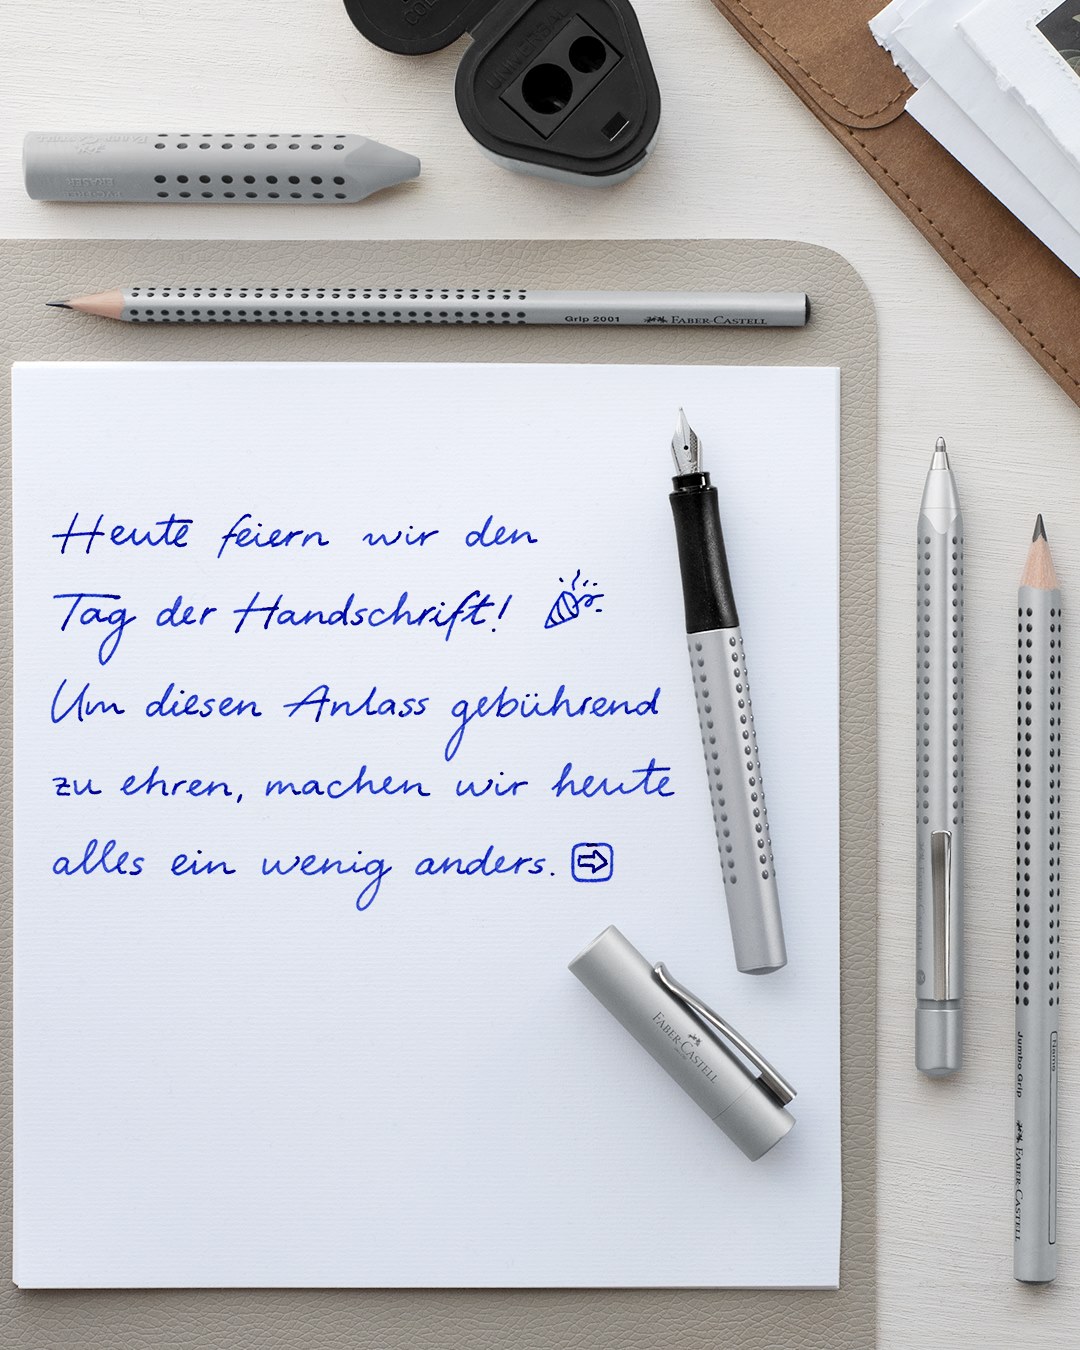 Grip 2001 FABER-CASTELL
Heute feiern wir den
Tag der Handschrift! 🎉
Um diesen Anlass gebührend
zu ehren, machen wir heute
alles ein wenig anders. ➡️
FABER-CASTELL
Name
Jumbo Grip FABER-CASTELL